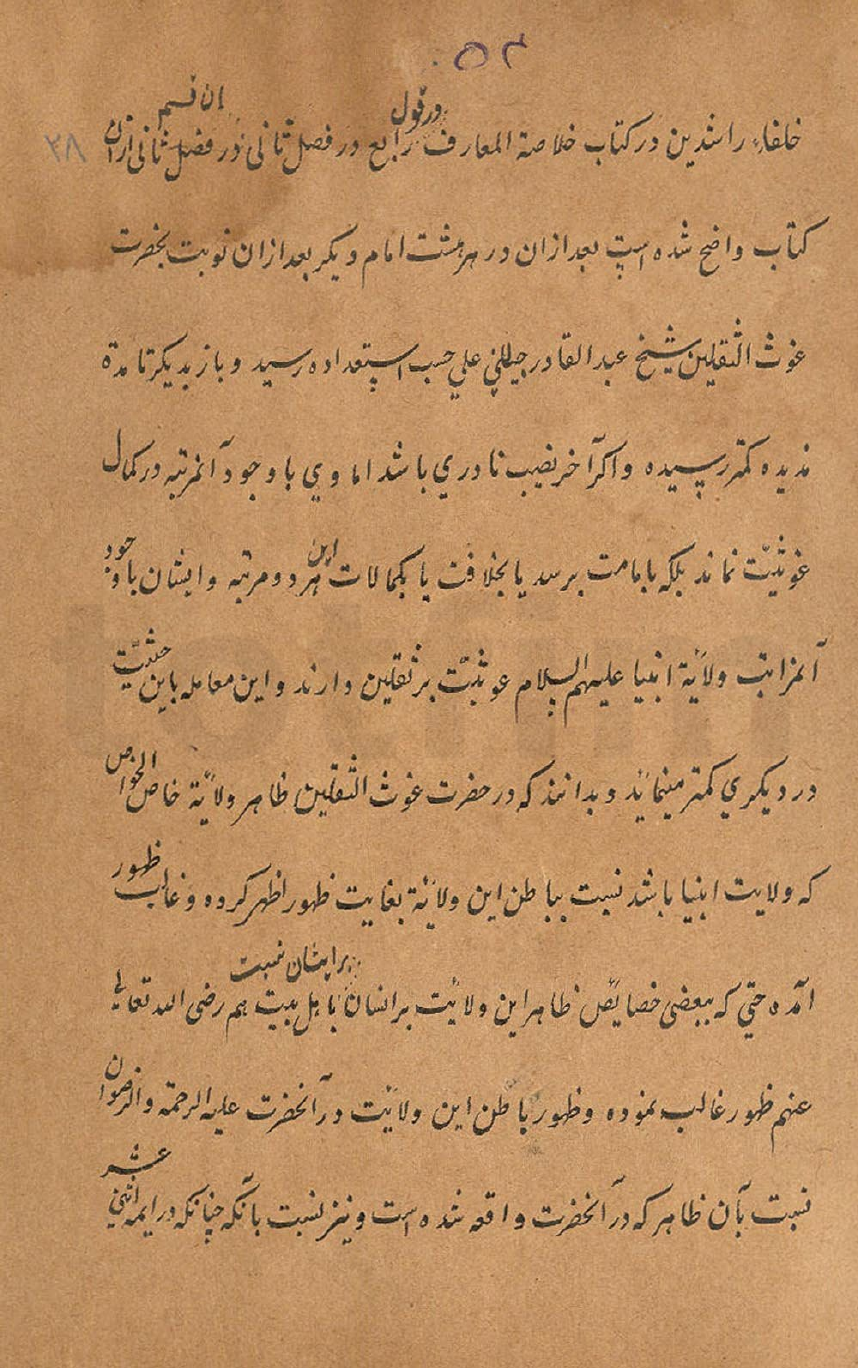 ۵۳
۳۸
خلفاء راشدین در کتاب خلاصة المعارف در قول رابع در فصل ثانی در فصل ثانی ازان قسم ازان
کتاب واضح شده است بعد ازان در هر هشت امام دیکر بعد ازان نوبت بحضرت
غوث الثقلین شیخ عبد القادر جیلانی علی حسب استعداده رسید و باز بدیکر تا مدة
مدیده کمتر رسیده و اکر آخر نصیب نادری باشد اما وی با وجود آنمرتبه در کمال
غوثیّت نماند بلکه بامامت برسد یا بخلافت یا بکمالات این هر دو مرتبه و ایشان با وجود
آنمراتب ولایة انبیا علیهم السلام غوثیّت بر ثقلین دارند و این معامله باین حیثیّت
در دیکری کمتر مینماید و بدانند که در حضرت غوث الثقلین ظاهر ولایة خاص الخواص
که ولایت انبیا باشد نسبت بباطن این ولایة بغایت ظهور اظهر کرده و غالب ظهور
آمده حتی که ببعضی خصایص ظاهر این ولایت بر ایشان نسبت باهل بیت هم رضی الله تعالی
عنهم ظهور غالب نموده و ظهور باطن این ولایت در آنحضرت علیه الرحمة والرضوان
نسبت بآن ظاهر که در آنحضرت واقعه شده است و نیز نسبت بآنکه چنانکه در ایمه اثنی عشر